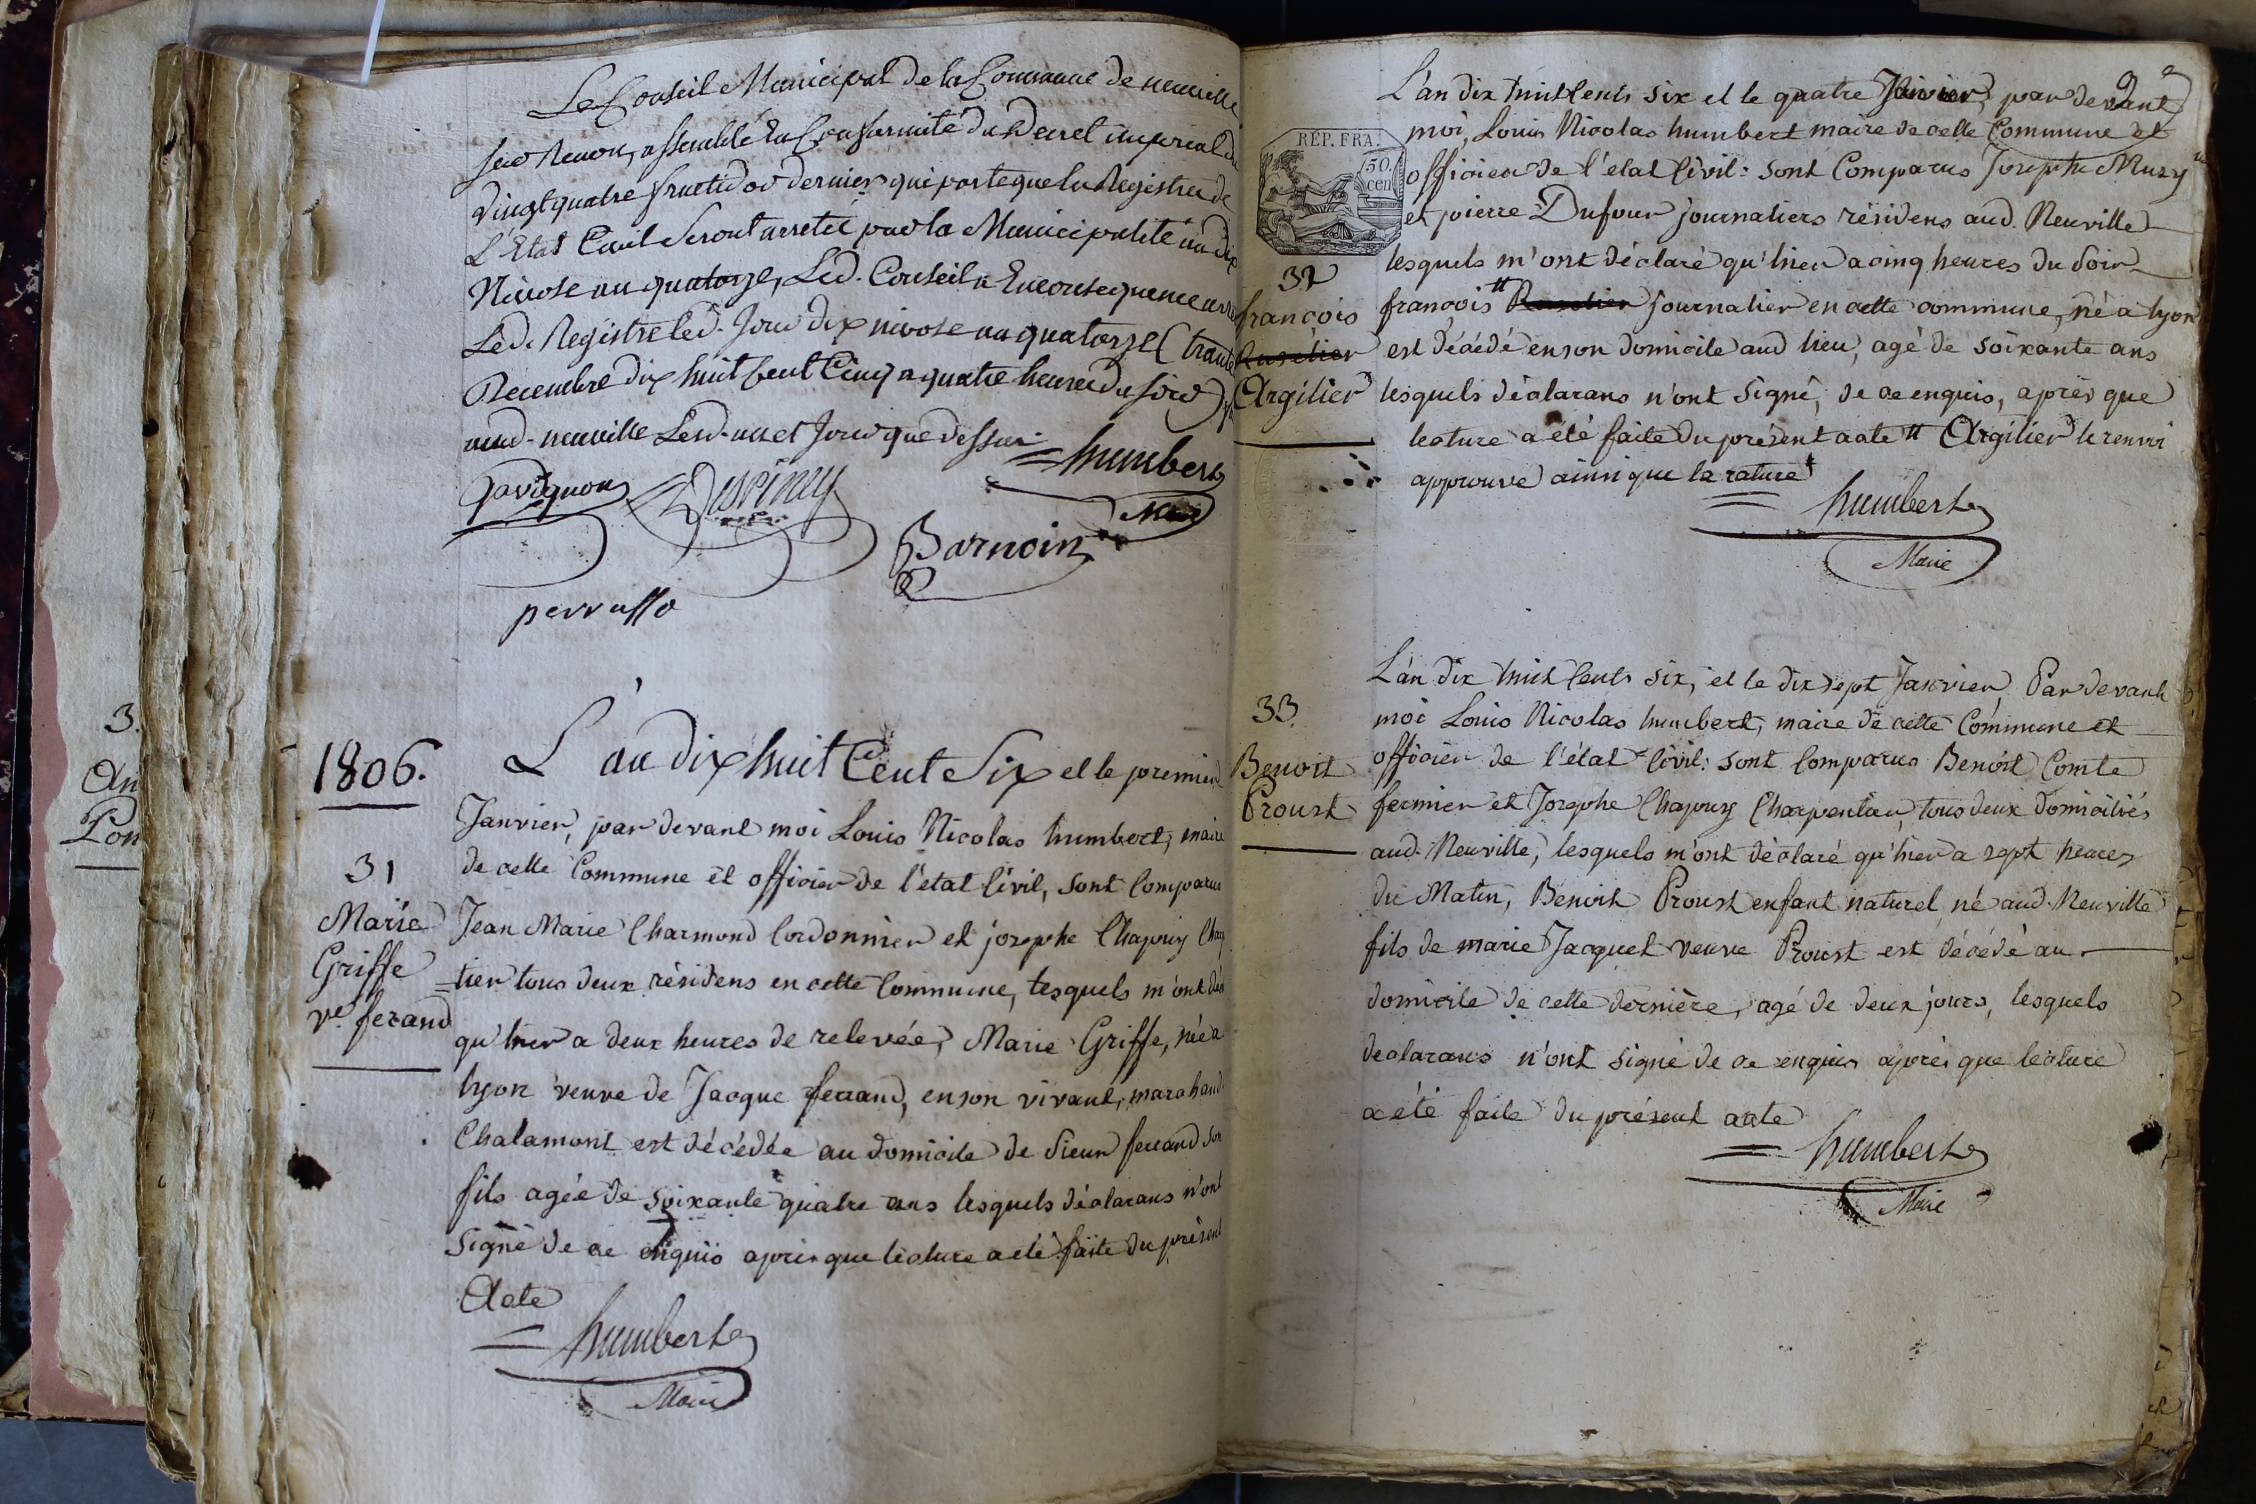 Le Conseil Municipal de la Commune de neuville
sur Renon, assemblé En Conformité du Decret imperial du
Vingt quatre fructidor dernier qui porte que les Registres de
L'Etat Civil Seront arretés par la Municipalité au dix
Nivose an quatorze, Led. Conseil a En consequence arre
Led. Registre led. Jour dix nivose an quatorze (trante
Decembre dix huit Cent Cinq a quatre heures du soir)
aud. neuville Lesd. an et Jour que dessus
humbert
Maire
Gavignon
Barnoin
perrusso
1806.
L'an dix huit Cent Six et le premier
Janvier, par devant moi Louis Nicolas humbert, maire
de cette Commune et officier de l'etat Civil, sont Comparus
31
Marie
Griffe
Ve. ferand
Jean Marie Charmond Cordonnier et josephe Chapuy Char
=tier tous deux résidens en cette Commune, lesquels m'ont déc
qu'hier a deux heures de relevée, Marie Griffe, née a
lyon veuve de Jacque ferrand, en son vivant, marchand
Chalamont est décédée au domicile de Sieur ferrand son
fils agée de soixante quatre ans lesquels déclarans n'ont
Signé de ce enquis après que lecture a été faite du présent
Acte
humbert
Maire
3.
An
Pon
32
L'an dix huit Cents six et le quatre Janvier, par devant
moi, Louis Nicolas humbert maire de cette Commune et
REP. FRA.
50.
cen
officier de l'etat Civil: sont Comparus Josephe Muzy
et pierre Dufour journaliers résidens aud. Neuville
lesquels m'ont déclaré qu'hier a cinq heures du Soir
32
françois
Argilier
françois " journalier en cette commune, né a lyon
est décédé en son domicile aud lieu, agé de soixante ans
lesquels déclarans n'ont signé, de ce enquis, après que
lecture a été faite du présent acte " Argilier le renvoi
approuvé ainsi que la rature
humbert
Maire
33.
Benoit
Proust
L'an dix huit Cents six, et le dix sept Janvier Par devant
moi Louis Nicolas humbert, maire de cette Commune et
officier de l'état Civil: sont Comparus Benoit Comte
fermier et Josephe Chapuy Charpentier, tous deux domiciliés
aud. Neuville, lesquels m'ont déclaré qu'hier a sept heures
du Matin, Benoit Proust enfant naturel né aud. Neuville
fils de marie Jacquet veuve Proust est décédé au
domicile de cette dernière, agé de deux jours, lesquels
declarans n'ont signé de ce enquis après que lecture
a été faite du présent acte
humbert
Maire